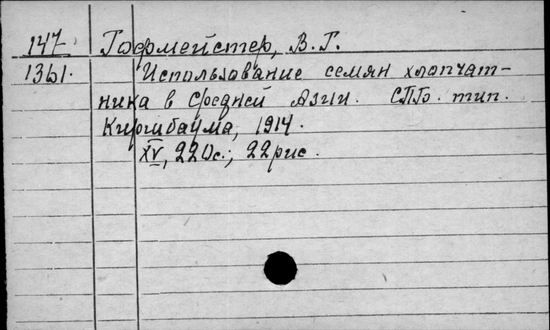 147 Гофмейстер, В.Г.
1361. Использование семян хлопчат-
ника в Средней Азии. СПб. тип.
Киршбаума, 1914.
XV, 220с.; 22рис.